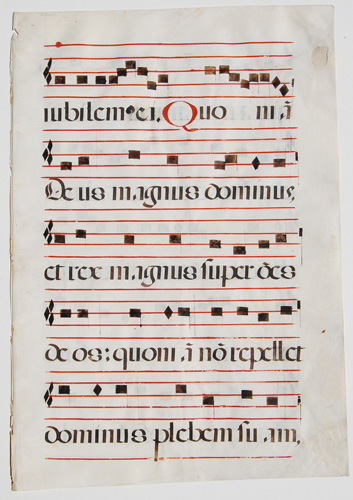 iubilemus ei. Quo niã
Deus magnus dominus,
et rex magnus super oẽs
deos: quoni ã nõ repellet
dominus plebem suam,